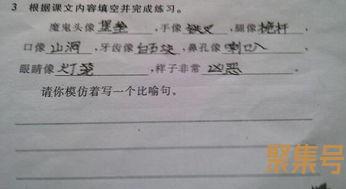 3 根据课文内容填空并完成练习。
魔鬼头像堡垒,手像铁叉,腿像桅杆,
口像山洞,牙齿像白石块,鼻孔像喇叭,
眼睛像灯笼,样子非常凶恶。
请你模仿着写一个比喻句。
聚集号